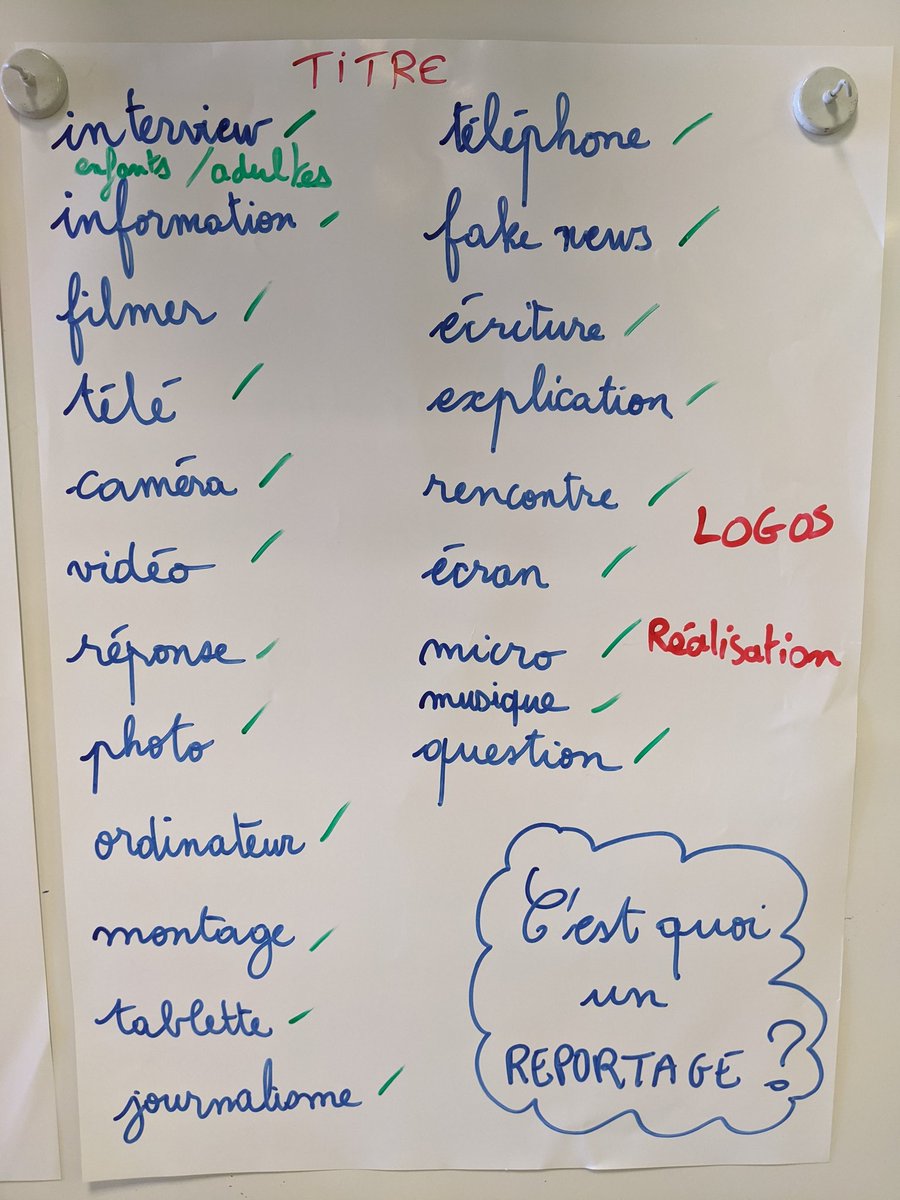 TITRE
interview
enfants / adultes
information
filmer
télé
caméra
vidéo
réponse
photo
ordinateur
montage
tablette
journalisme
téléphone
fake news
écriture
explication
rencontre
écran
micro
musique
question
LOGOS
Réalisation
C'est quoi
un
REPORTAGE ?